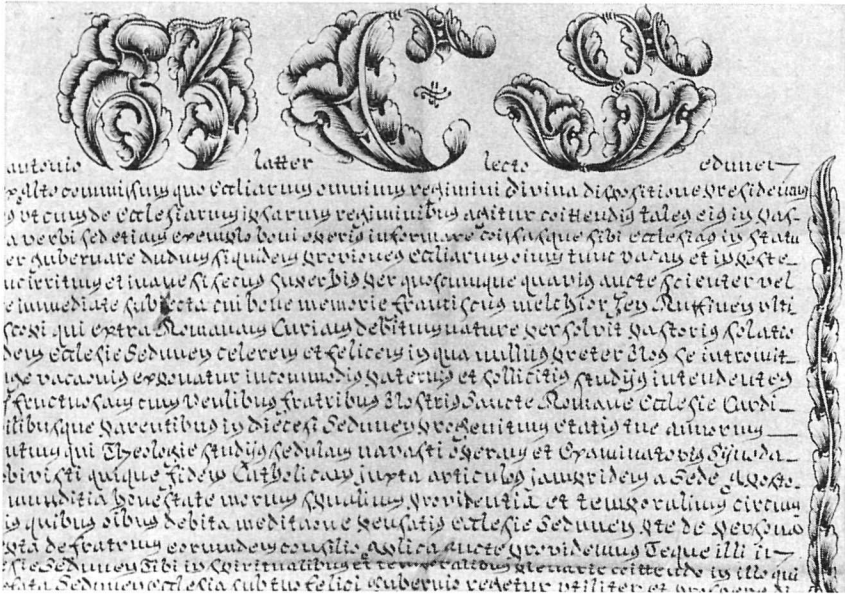 antonio latter lecto edunen
commissum quo eccliarum omnium regimini divina dispositione presidemus
ut cum de ecclesiarum ipsarum regiminibus agitur cōittendis tales eis in pas
a verbi sed etiam exemplo boni operis informare cōissasque sibi ecclesias in statu
er gubernare dudum siquidem proviones eccliarum oium tunc vacan et in poste
irritum et inane si secus super his per quoscumque quavis aucte scienter vel
e immediate subiecta cui bone memorie franciscus melchior Zen Ruffinen ulti
scopi qui extra Romanam Curiam debitum nature persolvit pastoris solatio
dem ecclesie Sedunen celerem et felicem in qua nullus preter Nos se intromit
vacaonis exponatur incommodis paternis et sollicitis studijs intendentes
fructuosam cum Venlibus fratribus Nostris Sancte Romane Ecclesie Cardi
ilibusque parentibus in diecesi Sedunen progenitum etatis tue annorum
qui Theologie studijs sedulam navasti operam et Examinatoris Synoda
quique fidem Catholicam juxta articulos jampridem a Sede Aposto
munditia honestate morum spualium providentia et temporalium circum
is quibus oibus debita meditaone pensatis ecclesie Sedunen pte de persona
pta de fratrum eorumdem consilio aplica aucte providemus Teque illi in
esie Sedunen Tibi in spiritualibus et temporalibus plenarie cōittendo in illo qui
efata Sedunen ecclesia sub tuo felici gubernio regetur utiliter et prospere di